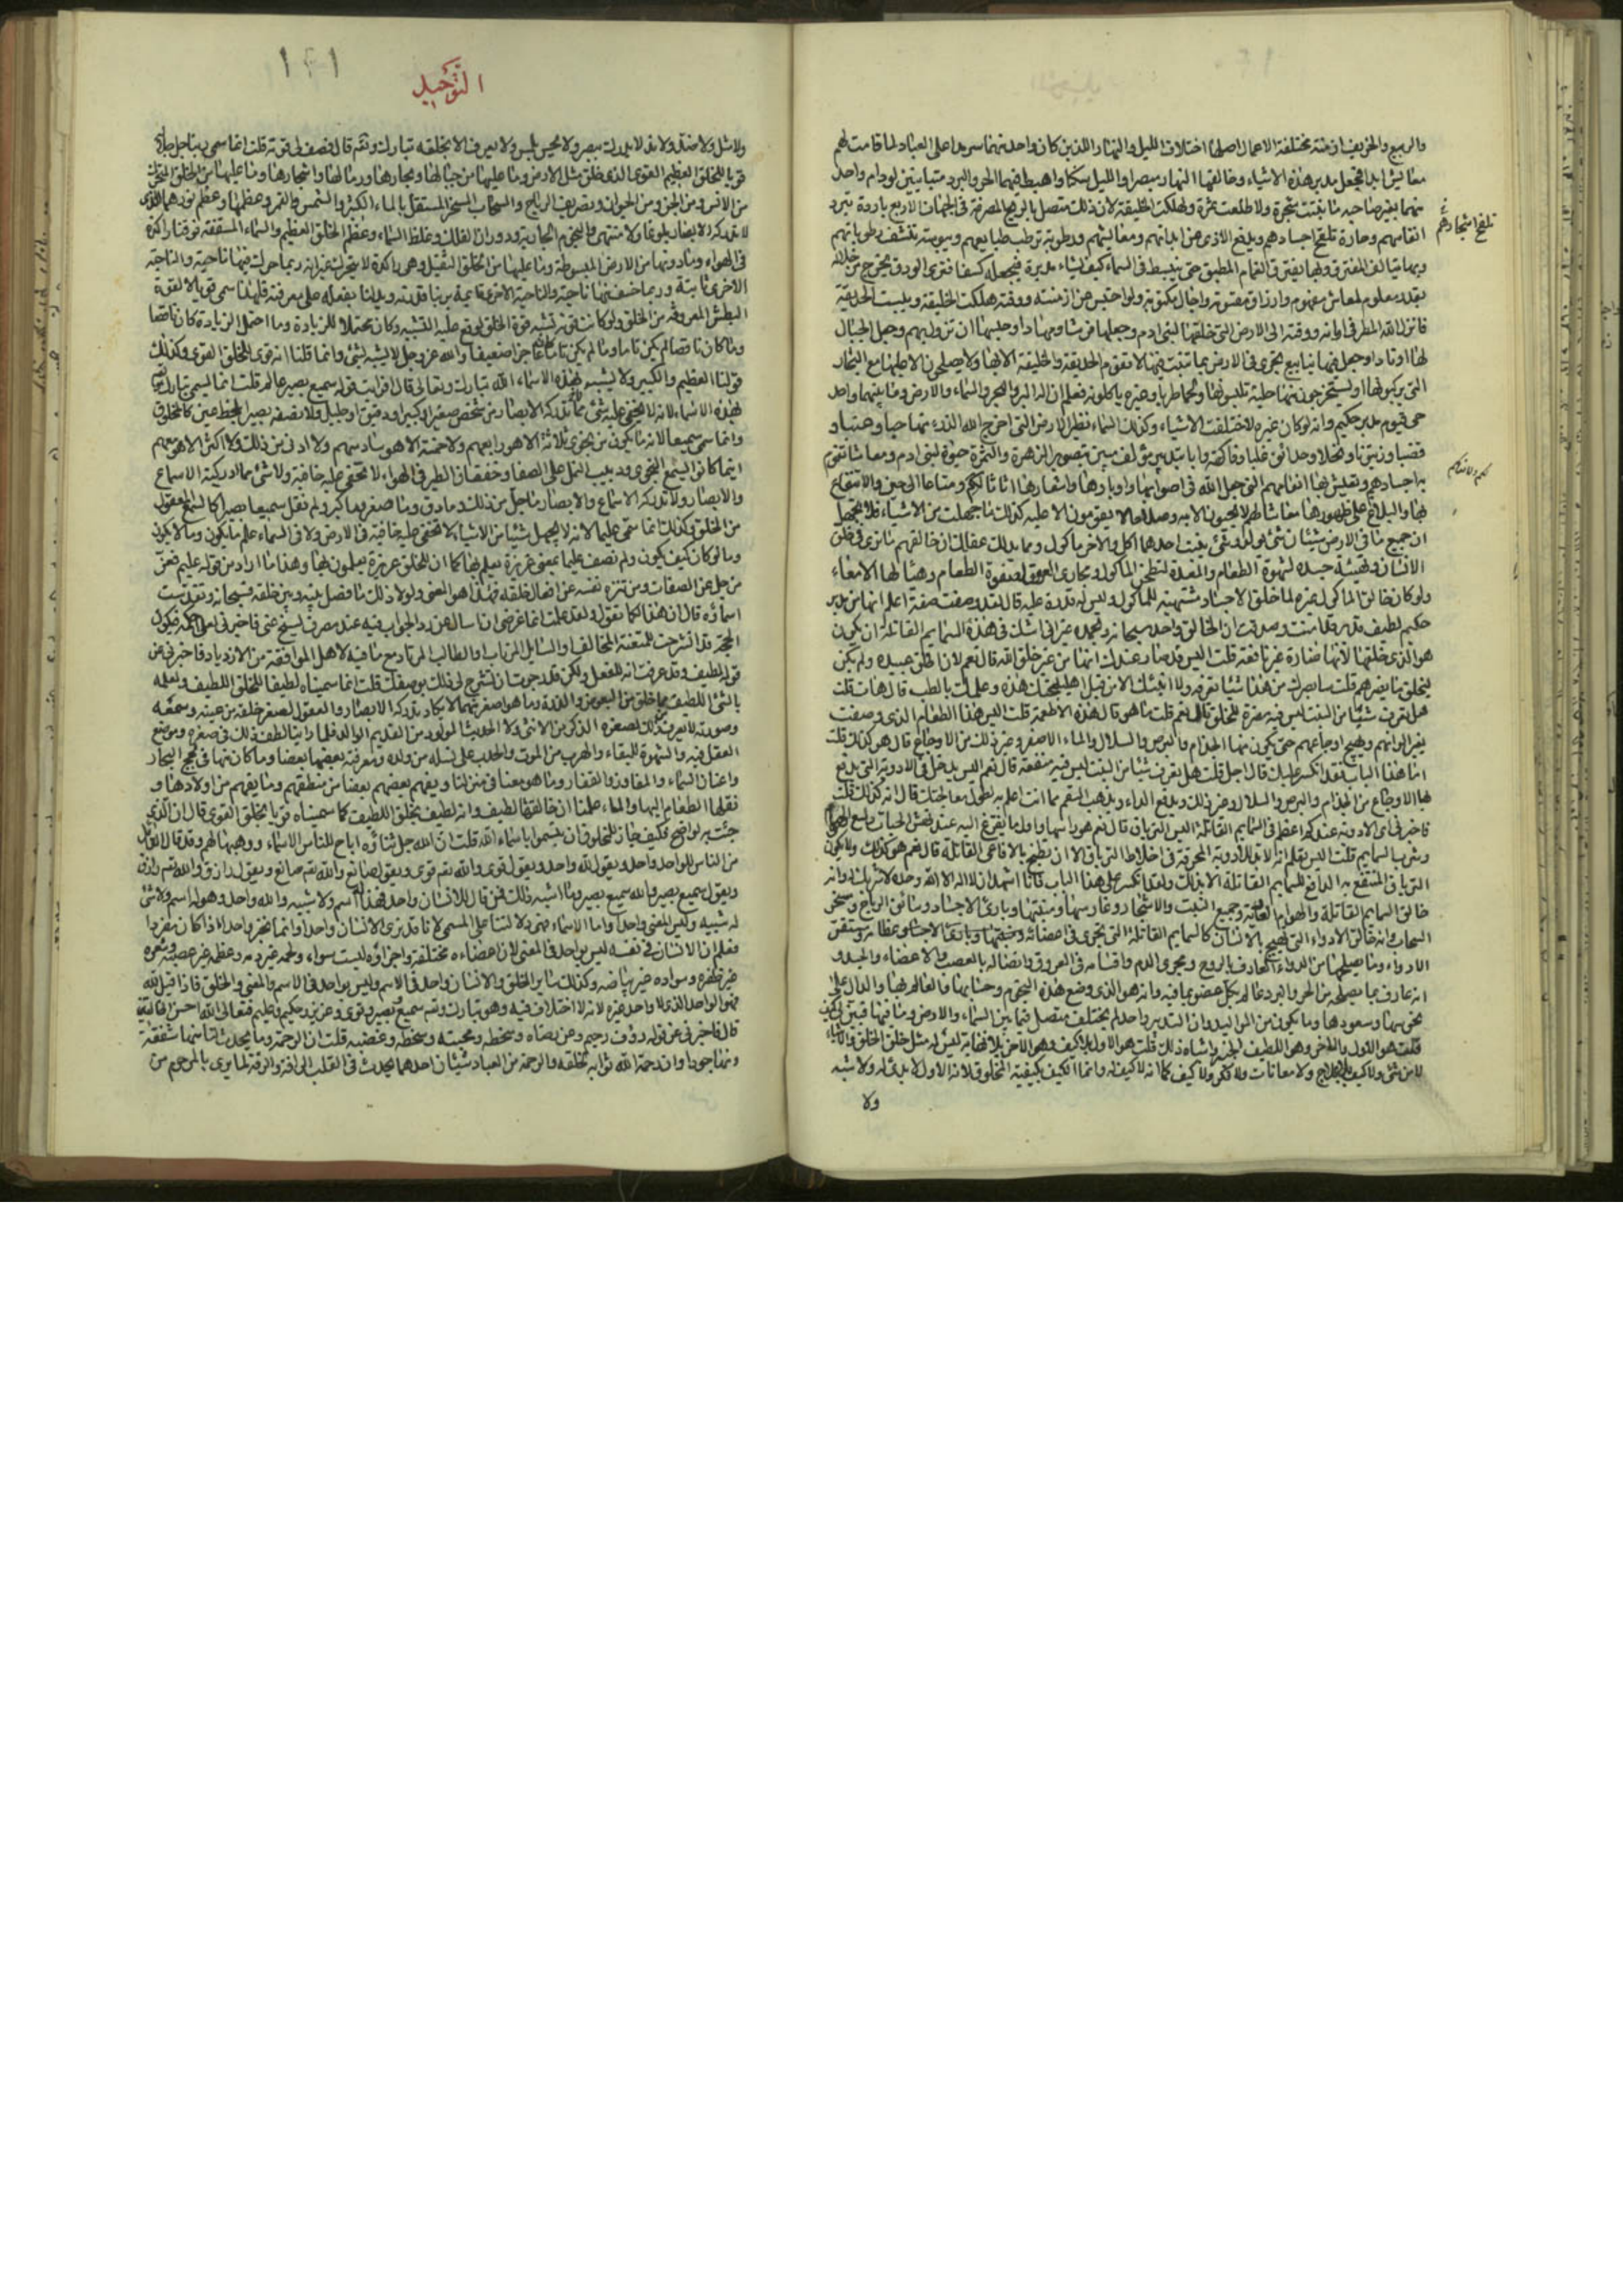 والربيع والخريف ازمنة مختلفة الاعمال اصلها اختلاف الليل والنهار اللذين كان واحد منهما سرمدا على العباد لما قامت لهم
معايش ابدا فجعل مدبر هذه الاشياء وخالقها النهار مبصرا والليل سكنا واهبط فيهما الحر والبرد متباينين لو دام واحد
منهما بغير صاحبه ما نبتت شجرة ولا طلعت ثمرة ولهلكت الخليقة لان ذلك متصل بالريح المصرفة في الجهات الاربع باردة تبرد
انفاسهم وحارة تلقح اجسادهم وتدفع الاذى عن ابدانهم ومعايشهم ورطوبة ترطب طبايعهم ويبوسة تنشف رطوباتهم
تلقح اشجارهم
وبها يأتلف المفترق وبها يتفرق الغمام المطبق حتى ينبسط في السماء كيف يشاء مدبره فيجعله كسفا فترى الودق يخرج من خلاله
بقدر معلوم لمعاش مفهوم وارزاق مقسومة واجال مكتوبة ولو احتبس عن ازمنته ووقته هلكت الخليقة ويبست الحديقة
فانزل الله المطر في اوانه ووقته الى الارض التي خلقها لبني ادم وجعلها فرشا ومهادا وحبسها ان تزول بهم وجعل الجبال
لها اوتادا وجعل فيها ينابيع تجري في الارض بما تنبت فيها لا تقوم الحديقة والخليقة الا بها ولا يصلحون الا عليها مع البحار
التي يركبونها ويستخرجون منها حلية تلبسونها ولحما طريا وغيره يأكلونه فعلم ان اله البر والبحر والسماء والارض وما بينهما واحد
حي قيوم مدبر حكيم وانه لو كان غيره لاختلفت الاشياء وكذلك السماء نظير الارض التي اخرج الله منها حبا وعنبا و
قضبا وزيتونا ونخلا وحدائق غلبا وفاكهة وابا بتدبير مؤلف مبين بتصوير الزهرة والثمرة حيوة لبني ادم ومعاشا تقوم
به اجسادهم وتعيش بها انعامهم التي جعل الله في اصوافها واوبارها واشعارها اثاثا ومتاعا الى حين والانتفاع
بها والبلاغ على ظهورها معاشا لهم لا يحيون الا به وصلاحا لا يقومون الا عليه وكذلك ما جهلت من الاشياء فلا تجهل
ان جميع ما في الارض شيئان شيء يولد وشيء ينبت احدهما اكل والاخر مأكول ومما يدلك عقلك ان خالقهم ما ترى في خلق
الانسان وتهيئة جسده لشهوة الطعام والمعدة لتطحن المأكول ومجاري العروق لصفوة الطعام وهيأ لها الامعاء
ولو كان خالق المأكول غيره لما خلق الاجساد مشتهية للمأكول وليس له قدرة عليه قال لقد وصفت صفة اعلم انها من مدبر
حكيم لطيف قدير قد امنت وصدقت ان الخالق واحد سبحانه وبحمده غير اني اشك في هذه السمايم القاتلة ان يكون
هو الذي خلقها لانها ضارة غير نافعة قلت اليس قد صار عندك انها من غير خلق الله قال نعم لان الخلق عبيده ولم يكن
ليخلق ما يضرهم قلت سابصرك من هذا شيئا تعرفه ولا انبئك الا من قبل اهليلجتك هذه وعلمك بالطب قال هات قلت
هل تعرف شيئا من النبت ليس فيه مضرة للخلق قال نعم قلت ما هو قال هذه الاطعمة قلت اليس هذا الطعام الذي وصفت
يغير الوانهم ويهيج اوجاعهم حتى يكون منها الجذام والبرص والسلال والماء الاصفر وغير ذلك من الاوجاع قال هو كذلك قلت
اما هذا الباب فقد انكسر عليك قال اجل قلت هل تعرف شيئا من النبت ليس فيه منفعة قال نعم اليس يدخل في الادوية التي يدفع
بها الاوجاع من الجذام والبرص والسلال وغير ذلك ويدفع الداء ويذهب السقم مما انت اعلم به لطول معالجتك قال انه كذلك قلت
فاخبرني اي الادوية عندكم اعظم في السمايم القاتلة اليس الترياق قال نعم هو راسها واول ما يفزع اليه عند نهش الحيات ولسع الهوام
وشرب السمايم قلت اليس تعلم انه لا بد للادوية المحرقة في اخلاط الترياق الا ان تطبخ بالافاعي القاتلة قال نعم هو كذلك ولا يكون
الترياق المنتفع به الدافع للسمايم القاتلة الا بذلك ولقد انكسر علي هذا الباب فانا اشهد ان لا اله الا الله وحده لا شريك له وانه
خالق السمايم القاتلة والهوام العادية وجميع النبت والاشجار وغارسها ومنبتها وبارئ الاجساد وسائق الرياح ومسخر
السحاب وانه خالق الادواء التي تهيج بالانسان كالسمايم القاتلة التي تجري في اعضائه وعظامه ومستقر
الادواء وما يصلحها من الدواء العارف بالروح ومجرى الدم واقسامه في العروق واتصاله بالعصب والاعضاء والجسد و
انه عارف بما يصلحه من الحر والبرد عالم بكل عضو بما فيه وانه هو الذي وضع هذه النجوم وحسابها والعالم بها والدال على
نحوسها وسعودها وما يكون من المواليد وان التدبير واحد لم يختلف متصل فيما بين السماء والارض وما فيها فبين لي كيف
قلت هو الاول والاخر وهو اللطيف الخبير واشباه ذلك قلت هو الاول بلا كيف وهو الاخر بلا نهاية ليس له مثل خلق الخلق والاشياء
لا من شيء ولا كيف بلا علاج ولا معاناة ولا فكر ولا كيف كما انه لا كيف له وانما الكيف بكيفية المخلوق لانه الاول لا بدء له ولا شبه
ولا
التوحيد
١٢١
ولا مثل ولا ضد ولا ند لا يدرك ببصر ولا يحس بلمس ولا يعرف الا بخلقه تبارك وتعالى قال فصف لي قوته قلت انما سمي ربنا جل جلاله
قويا للخلق العظيم القوي الذي خلق مثل الارض وما عليها من جبالها وبحارها ورمالها واشجارها وما عليها من الخلق المتحرك
من الانس ومن الجن ومن الحيوان وتصريف الرياح والسحاب المسخر المستقل بالماء الكثير والشمس والقمر وعظمها وعظم نورهما الذي
لا تدركه الابصار بلوغا ولا منتهى والنجوم الجارية ودوران الفلك وغلظ السماء وعظم الخلق العظيم والسماء المسقفة فوقنا راكدة
في الهواء وما دونها من الارض المبسوطة وما عليها من الخلق الثقيل وهي راكدة لا تتحرك غير انه ربما حرك فيها ناحية والناحية
الاخرى ثابتة وربما خسف منها ناحية والناحية الاخرى قايمة يرينا قدرته ويدلنا بفعله على معرفته فلهذا سمي قويا لا لقوة
البطش المعروفة من الخلق ولو كانت قوته تشبه قوة الخلق لوقع عليه التشبيه وكان محتملا للزيادة وما احتمل الزيادة كان ناقصا
وما كان ناقصا لم يكن تاما وما لم يكن تاما كان عاجزا ضعيفا والله عز وجل لا يشبه بشيء وانما قلنا انه قوي للخلق القوي وكذلك
قولنا العظيم والكبير ولا يشبه بهذه الاسماء الله تبارك وتعالى قال افرأيت قوله سميع بصير عالم قلت انما يسمى تبارك وتعالى
بهذه الاسماء لانه لا يخفى عليه شيء مما تدركه الابصار من شخص صغير او كبير او دقيق او جليل ولا نصفه بصيرا بلحظ عين كالمخلوق
وانما سمي سميعا لانه ما يكون من نجوى ثلاثة الا هو رابعهم ولا خمسة الا هو سادسهم ولا ادنى من ذلك ولا اكثر الا هو معهم
اينما كانوا يسمع النجوى ودبيب النمل على الصفا وخفقان الطير في الهواء لا تخفى عليه خافية ولا شيء مما ادركته الاسماع
والابصار وما لا تدركه الاسماع والابصار ما جل من ذلك وما دق وما صغر وما كبر ولم نقل سميعا بصيرا كالسمع المعقول
من الخلق وكذلك انما سمي عليما لانه لا يجهل شيئا من الاشياء لا تخفى عليه خافية في الارض ولا في السماء علم ما يكون وما لا يكون
وما لو كان كيف يكون ولم نصف عليما بمعنى غريزة يعلم بها كما ان للخلق غريزة يعلمون بها فهذا ما اراد من قوله عليم فعز
من جل عن الصفات ومن نزه نفسه عن افعال خلقه فهذا هو المعنى ولولا ذلك ما فصل بينه وبين خلقه فسبحانه وتقدست
اسماؤه قال ان هذا لكما تقول ولقد علمت انما غرضي ان اسال عن رد الجواب فيه عند مصرف يسنح عني فاخبرني لعلي احكمه فيكون
الحجة قد انشرحت للمتعنت المخالف او السايل المرتاب او الطالب المرتاد مع ما فيه لاهل الموافقة من الازدياد فاخبرني عن
قوله لطيف وقد عرفت انه للفعل ولكن قد رجوت ان تشرح لي ذلك بوصفك قلت انما سميناه لطيفا للخلق اللطيف ولعلمه
بالشيء اللطيف مما خلق من البعوض والذرة وما هو اصغر منهما لا يكاد تدركه الابصار والعقول لصغر خلقه من عينه وسمعه
وصورته لا يعرف من ذلك لصغره الذكر من الانثى ولا الحديث المولود من القديم الوالد فلما راينا لطف ذلك في صغره وموضع
العقل فيه والشهوة للبقاء والهرب من الموت والحدب على نسله من ولده ومعرفة بعضها بعضا وما كان منها في لجج البحار
واعنان السماء والمفاوز والقفار وما هو معنا في منزلنا ويفهم بعضهم بعضا من منطقهم وما يفهم من اولادها و
نقلها الطعام اليها والماء علمنا ان خالقها لطيف وانه لطيف بخلق اللطيف كما سميناه قويا بخلق القوي قال ان الذي
جئت به لواضح فكيف جاز للخلق ان يتسموا باسماء الله قلت ان الله جل ثناؤه اباح للناس الاسماء ووهبها لهم وقد قال القائل
من الناس للواحد واحد ويقول لله واحد ويقول قوي والله تعالى قوي ويقول صانع والله تعالى صانع ويقول رازق والله تعالى رازق
ويقول سميع بصير والله سميع بصير وما اشبه ذلك فمن قال للانسان واحد فهذا له اسم وله شبيه والله واحد وهو له اسم ولا شيء
له شبيه وليس المعنى واحدا واما الاسماء فهي دلالتنا على المسمى لانا قد نرى الانسان واحدا وانما نخبر واحدا اذا كان مفردا
فعلم ان الانسان في نفسه ليس بواحد في المعنى لان اعضاءه مختلفة واجزاؤه ليست سواء ولحمه غير دمه وعظمه غير عصبه وشعره
غير ظفره وسواده غير بياضه وكذلك ساير الخلق والانسان واحد في الاسم وليس بواحد في الاسم والمعنى والخلق فاذا قيل لله
فهو الواحد الذي لا واحد غيره لانه لا اختلاف فيه وهو تبارك وتعالى سميع بصير وقوي وعزيز وحكيم وعليم فتعالى الله احسن الخالقين
قال فاخبرني عن قوله رؤف رحيم وعن رضاه ومحبته وغضبه وسخطه قلت ان الرحمة وما يحدث لنا منها شفقة
ومنها جود وان رحمة الله ثوابه لخلقه والرحمة من العباد شيئان احدهما يحدث في القلب الرأفة والرقة لما يرى بالمرحوم من